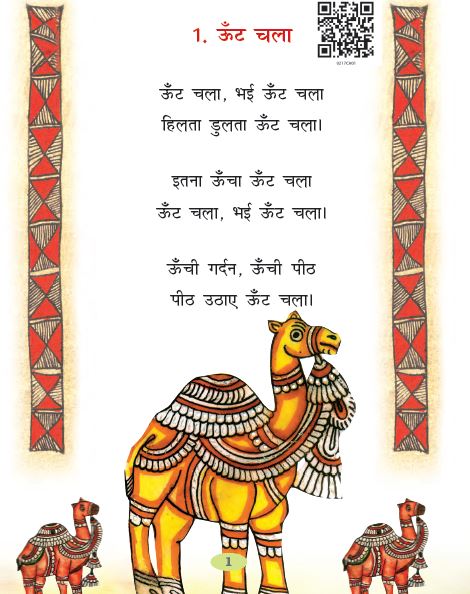 1. ऊँट चला
0217CH01
ऊँट चला, भई ऊँट चला
हिलता डुलता ऊँट चला।
इतना ऊँचा ऊँट चला
ऊँट चला, भई ऊँट चला।
ऊँची गर्दन, ऊँची पीठ
पीठ उठाए ऊँट चला।
1